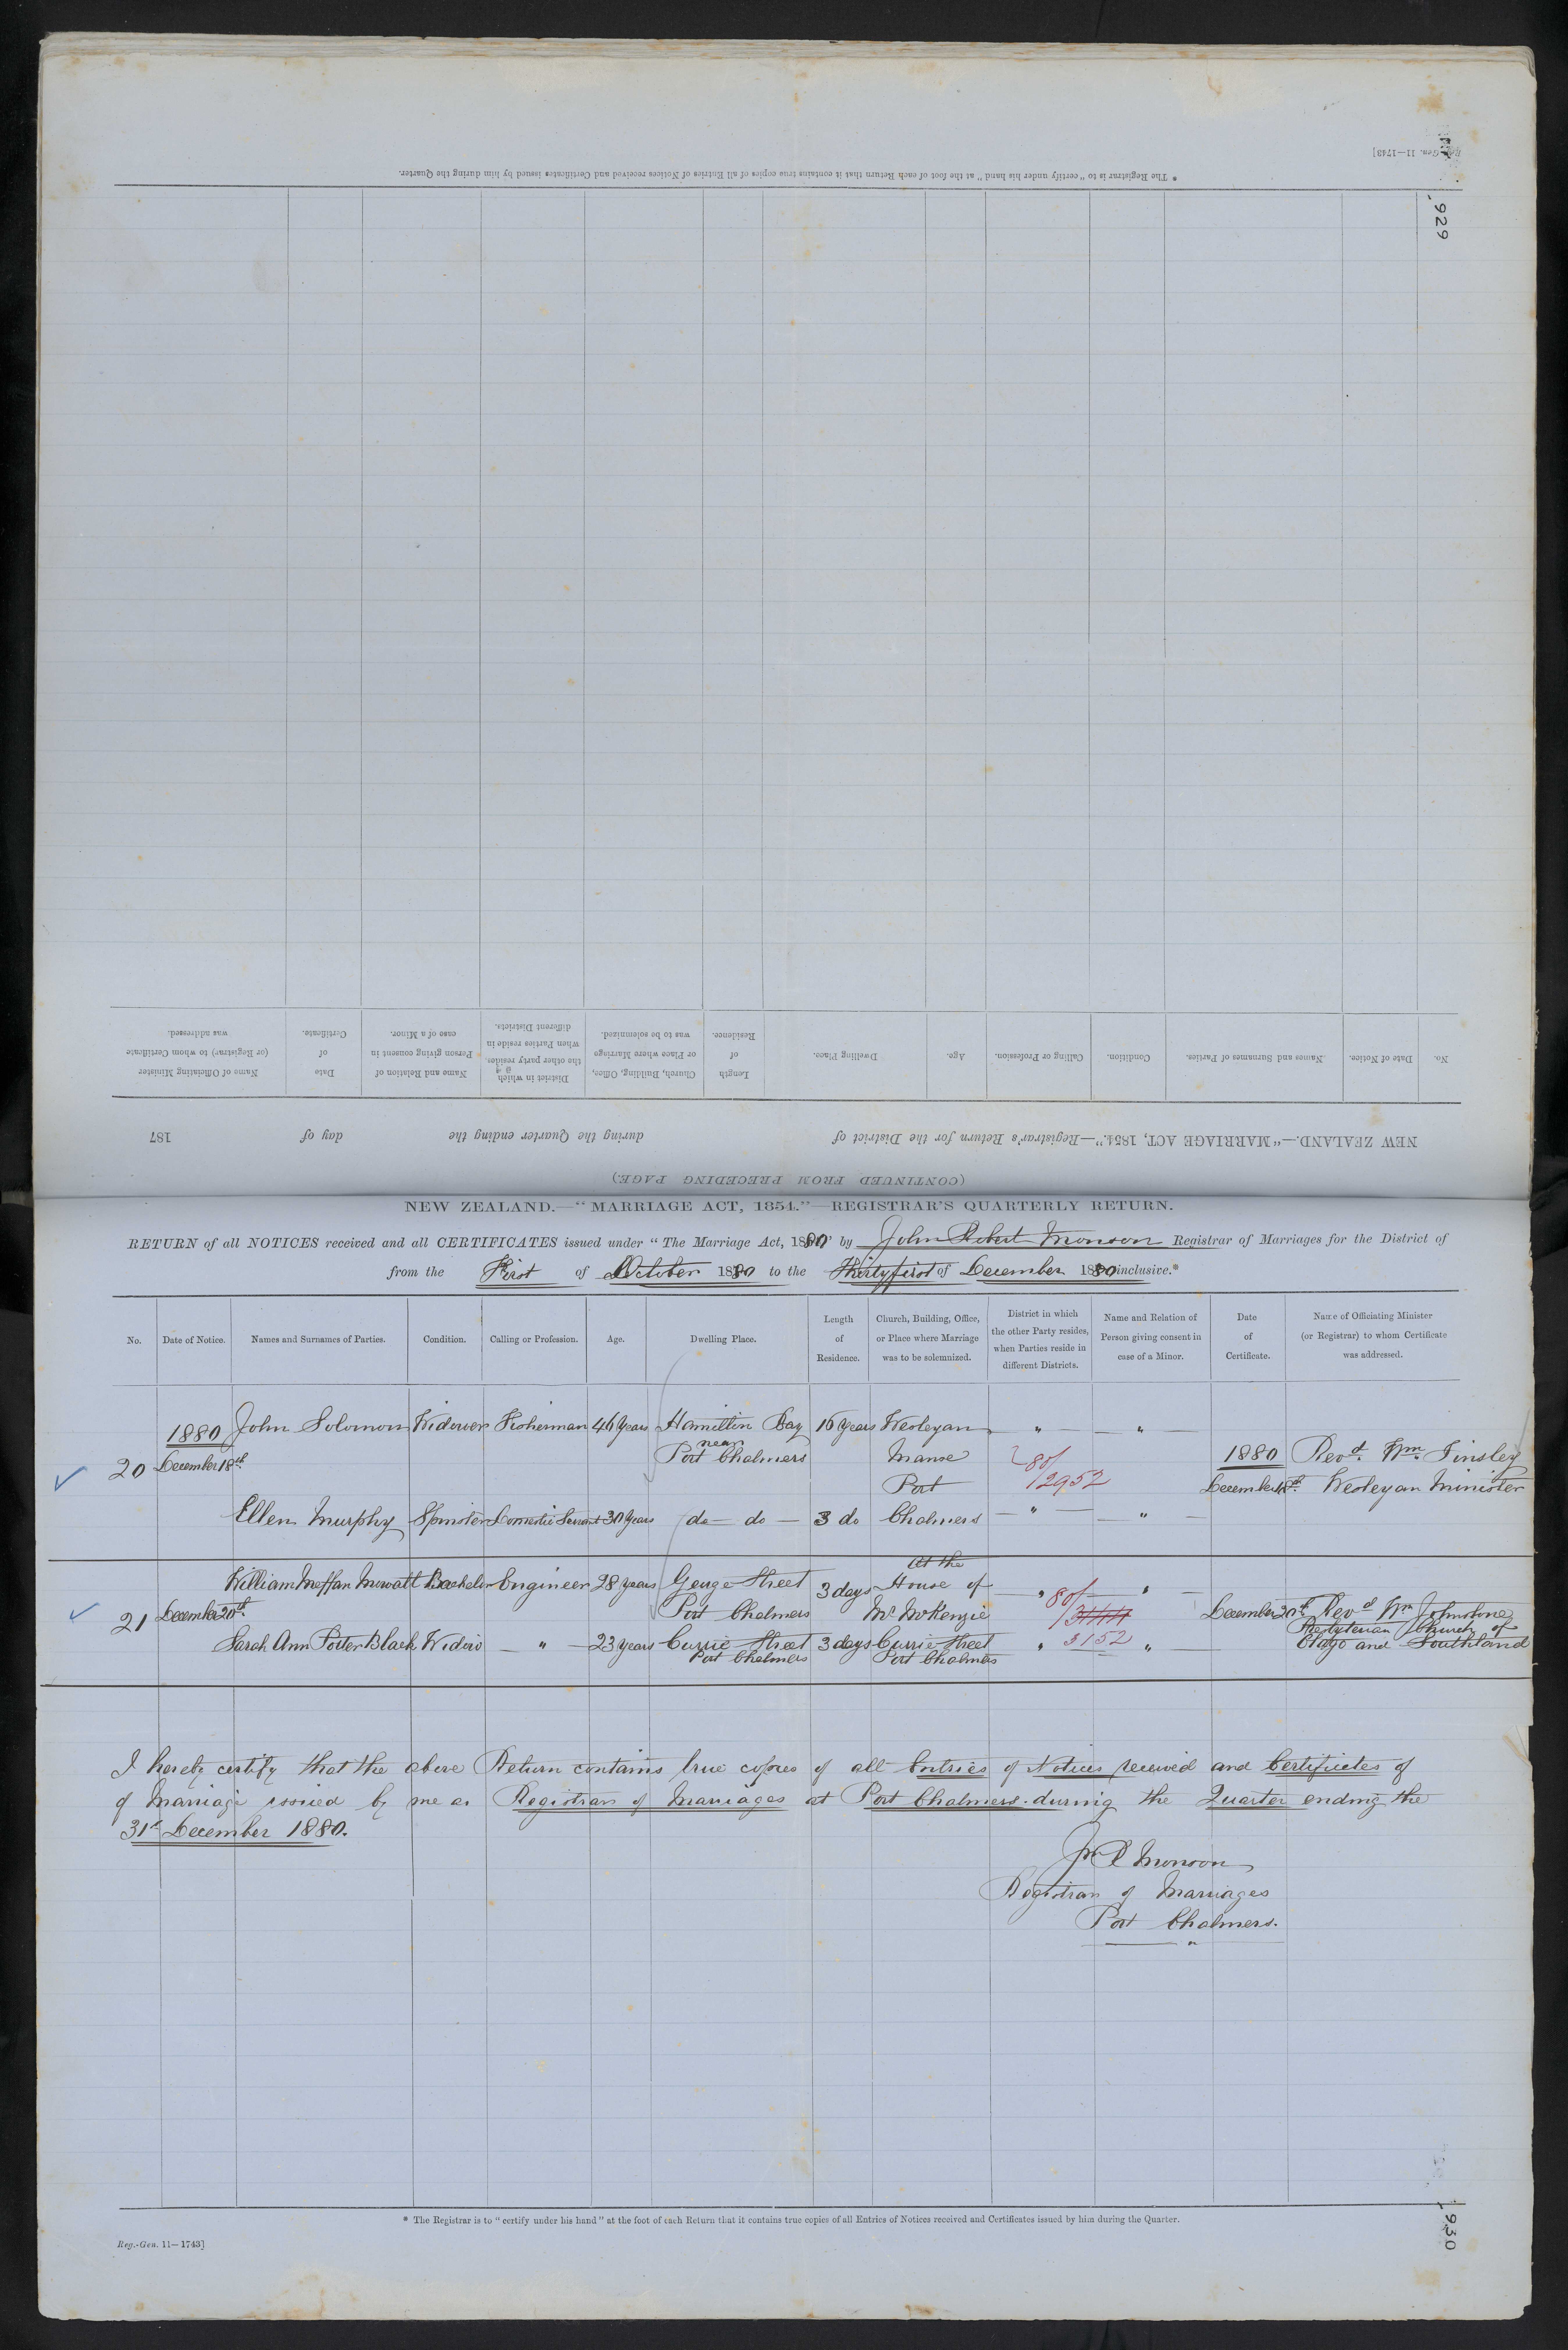 Reg.-Gen. 11—1743]
929
* The Registrar is to "certify under his hand" at the foot of each Return that it contains true copies of all Entries of Notices received and Certificates issued by him during the Quarter.
No. Date of Notice. Names and Surnames of Parties. Condition. Calling or Profession. Age. Dwelling Place. Length of Residence. Church, Building, Office, or Place where Marriage was to be solemnized. District in which the other party resides, when Parties reside in different Districts. Name and Relation of Person giving consent in case of a Minor. Date of Certificate. Name of Officiating Minister (or Registrar) to whom Certificate was addressed.
NEW ZEALAND.—"MARRIAGE ACT, 1854."—Registrar's Return for the District of during the Quarter ending the day of 187
(CONTINUED FROM PRECEDING PAGE.)
NEW ZEALAND.—"MARRIAGE ACT, 1854."—REGISTRAR'S QUARTERLY RETURN.
RETURN of all NOTICES received and all CERTIFICATES issued under "The Marriage Act, 1880" by John Robert Monson Registrar of Marriages for the District of
from the First of October 1880 to the Thirtyfirst of December 1880 inclusive.*
No. Date of Notice. Names and Surnames of Parties. Condition. Calling or Profession. Age. Dwelling Place. Length of Residence. Church, Building, Office, or Place where Marriage was to be solemnized. District in which the other Party resides, when Parties reside in different Districts. Name and Relation of Person giving consent in case of a Minor. Date of Certificate. Name of Officiating Minister (or Registrar) to whom Certificate was addressed.
1880 John Solomon Widower Fisherman 46 Years Hamilton Bay 16 years Wesleyan " "
near
20 December 18th Port Chalmers Manse 80/2952 1880 Revd. Wm. Tinsley
Port December 18th. Wesleyan Minister
Ellen Murphy Spinster Domestic Servant 30 Years do do 3 do Chalmers " "
At the
William Meffan Mowatt Bachelor Engineer 28 years George Street 3 days House of " 80/ "
21 December 20th. Port Chalmers Mr McKenzie December 20th Revd Wm Johnstone
Presbyterian Church of
Sarah Ann Potter Black Widow " 23 years Currie Street 3 days Currie Street " 3152 " Otago and Southland
Port Chalmers Port Chalmers
I hereby certify that the above Return contains true copies of all Entries of Notices received and Certificates of
of Marriage issued by me as Registrar of Marriages at Port Chalmers during the Quarter ending the
31st December 1880.
Jn R Monson
Registrar of Marriages
Port Chalmers.
* The Registrar is to "certify under his hand" at the foot of each Return that it contains true copies of all Entries of Notices received and Certificates issued by him during the Quarter.
Reg.-Gen. 11—1743]
930